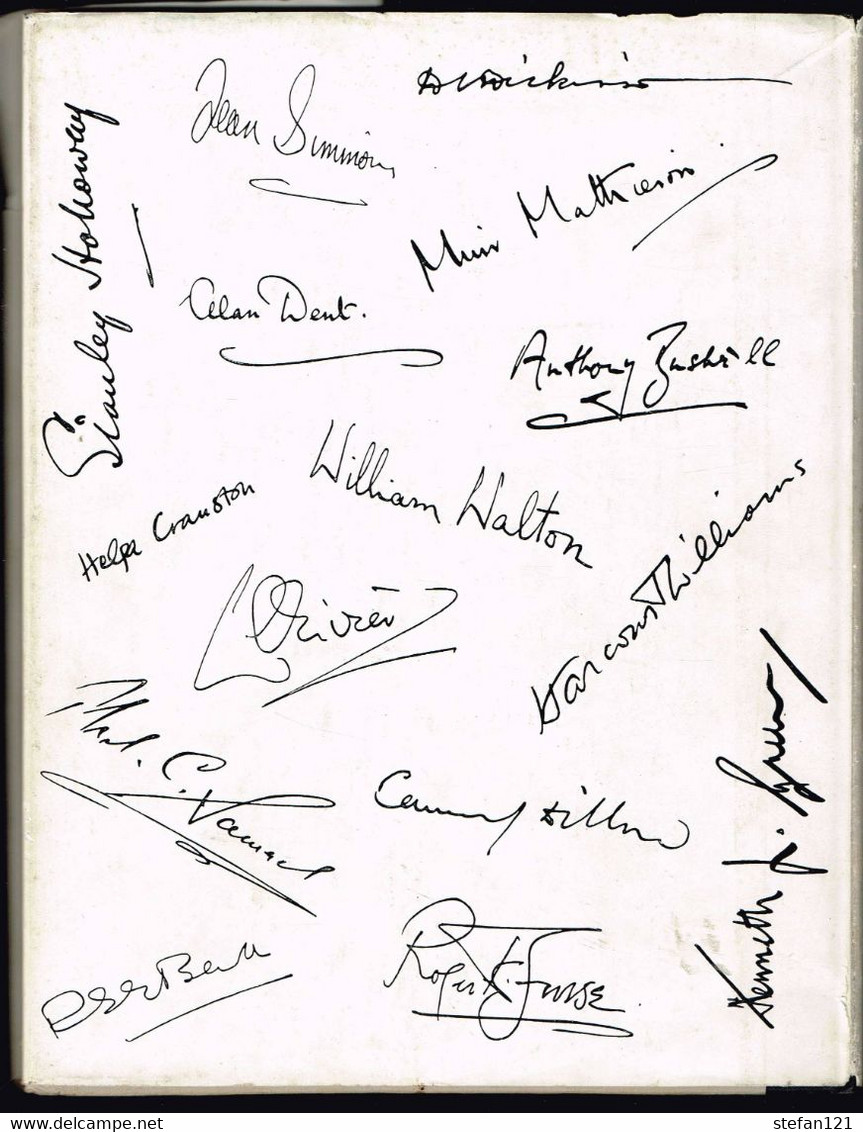 Jean Simmons
Stanley Holloway
Muir Mathieson
Alan Dent.
Anthony Bushell
William Walton
Helga Cranston
Harcourt Williams
LOlivier
Phil. C. Samuel
Carmen Dillon
Kenneth
Roger K. Furse.
www.delcampe.net
stefan121